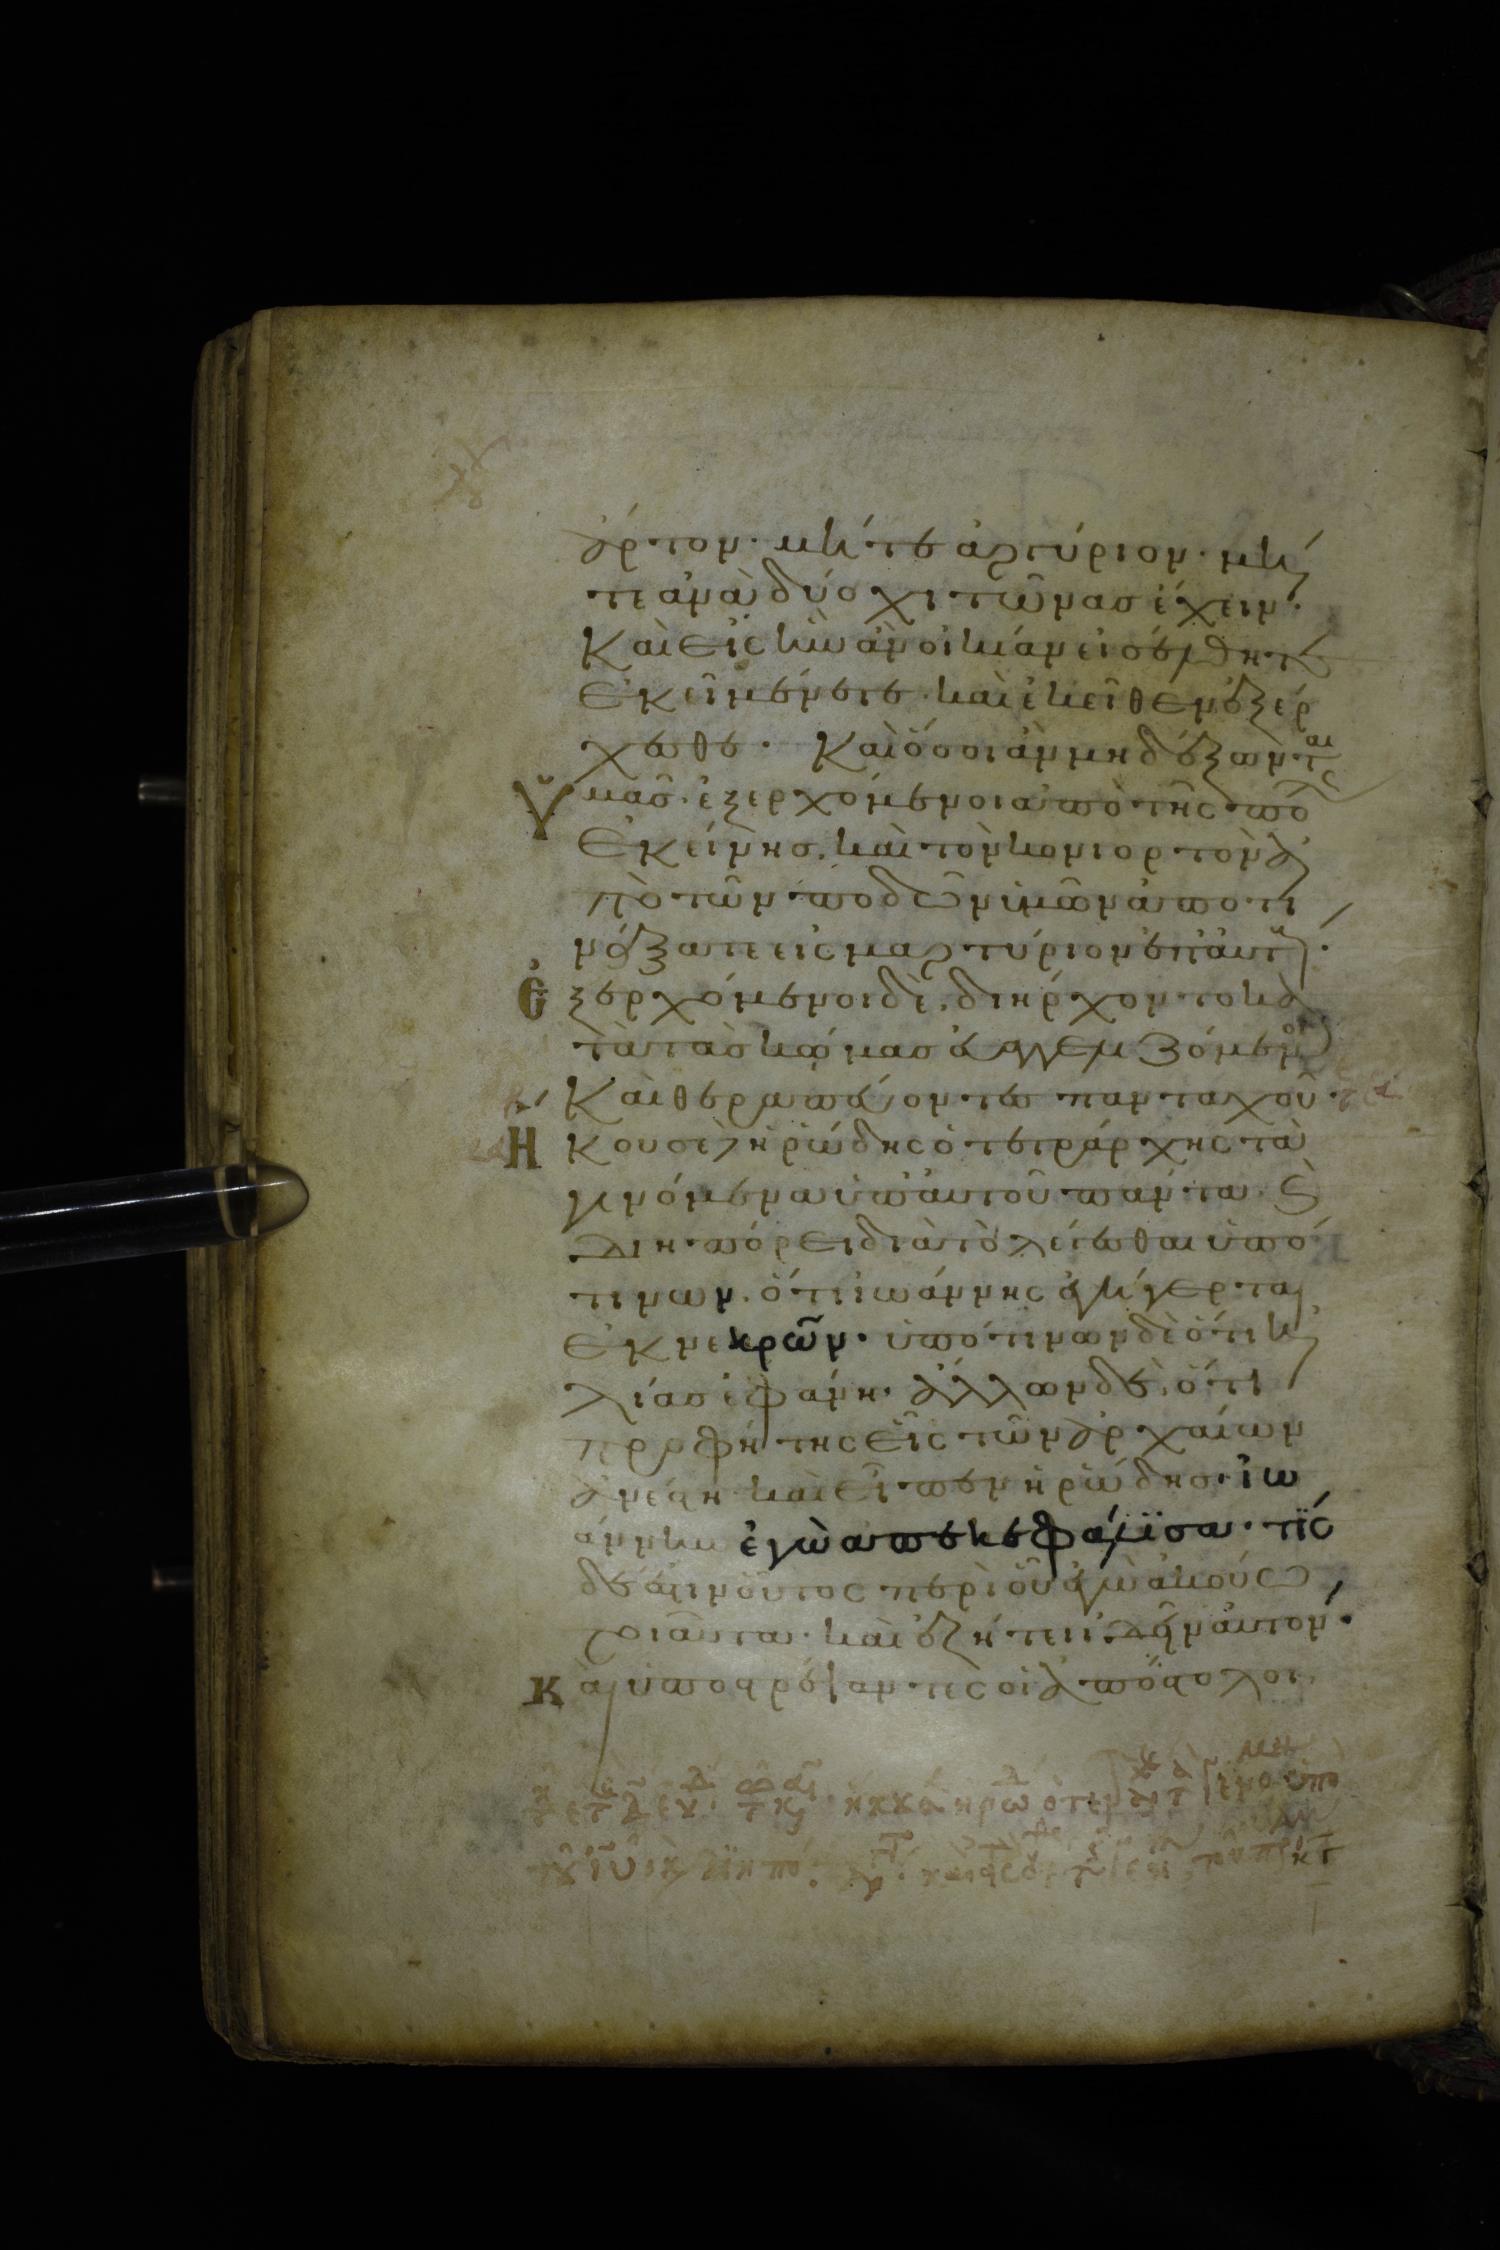 ἄρτον· μήτε ἀργύριον· μή
τε ἀνὰ δύο χιτῶνας ἔχειν·
Καὶ εἰς ἣν ἂν οἰκίαν εἰσέλθητε
ἐκεῖ μένετε· καὶ ἐκεῖθεν ἐξέρ
χεσθε· Καὶ ὅσοι ἂν μὴ δέξωνται
ὑμᾶς· ἐξερχόμενοι ἀπὸ τῆς πόλ
ἐκείνης, καὶ τὸν κονιορτὸν ἀ
πὸ τῶν ποδῶν ὑμῶν ἀποτι
νάξατε εἰς μαρτύριον ἐπ' αὐτούς·
Ἐξερχόμενοι δὲ, διήρχοντο κα
τὰ τὰς κώμας εὐαγγελιζόμενοι
Καὶ θεραπεύοντες πανταχοῦ·
Ηκουσε δὲ ἡρώδης ὁ τετράρχης τὰ
γινόμενα ὑπ' αὐτοῦ πάντα· καὶ
διηπόρει διὰ τὸ λέγεσθαι ὑπό
τινων· ὅτι ἰωάννης ἐγήγερται
ἐκ νεκρῶν· ὑπό τινων δὲ ὅτι ἡ
λίας ἐφάνη· ἄλλων δὲ, ὅτι
προφήτης εἷς τῶν ἀρχαίων
ἀνέστη· καὶ εἶπεν ἡρώδης· ἰω
άννην ἐγὼ ἀπεκεφάλϊσα· τίς
δέ ἐστιν οὗτος περὶ οὗ ἐγὼ ἀκούω
τοιαῦτα· καὶ ἐζήτει ἰδεῖν αὐτόν·
Καὶ ὑποστρέψαντες οἱ ἀπόστολοι